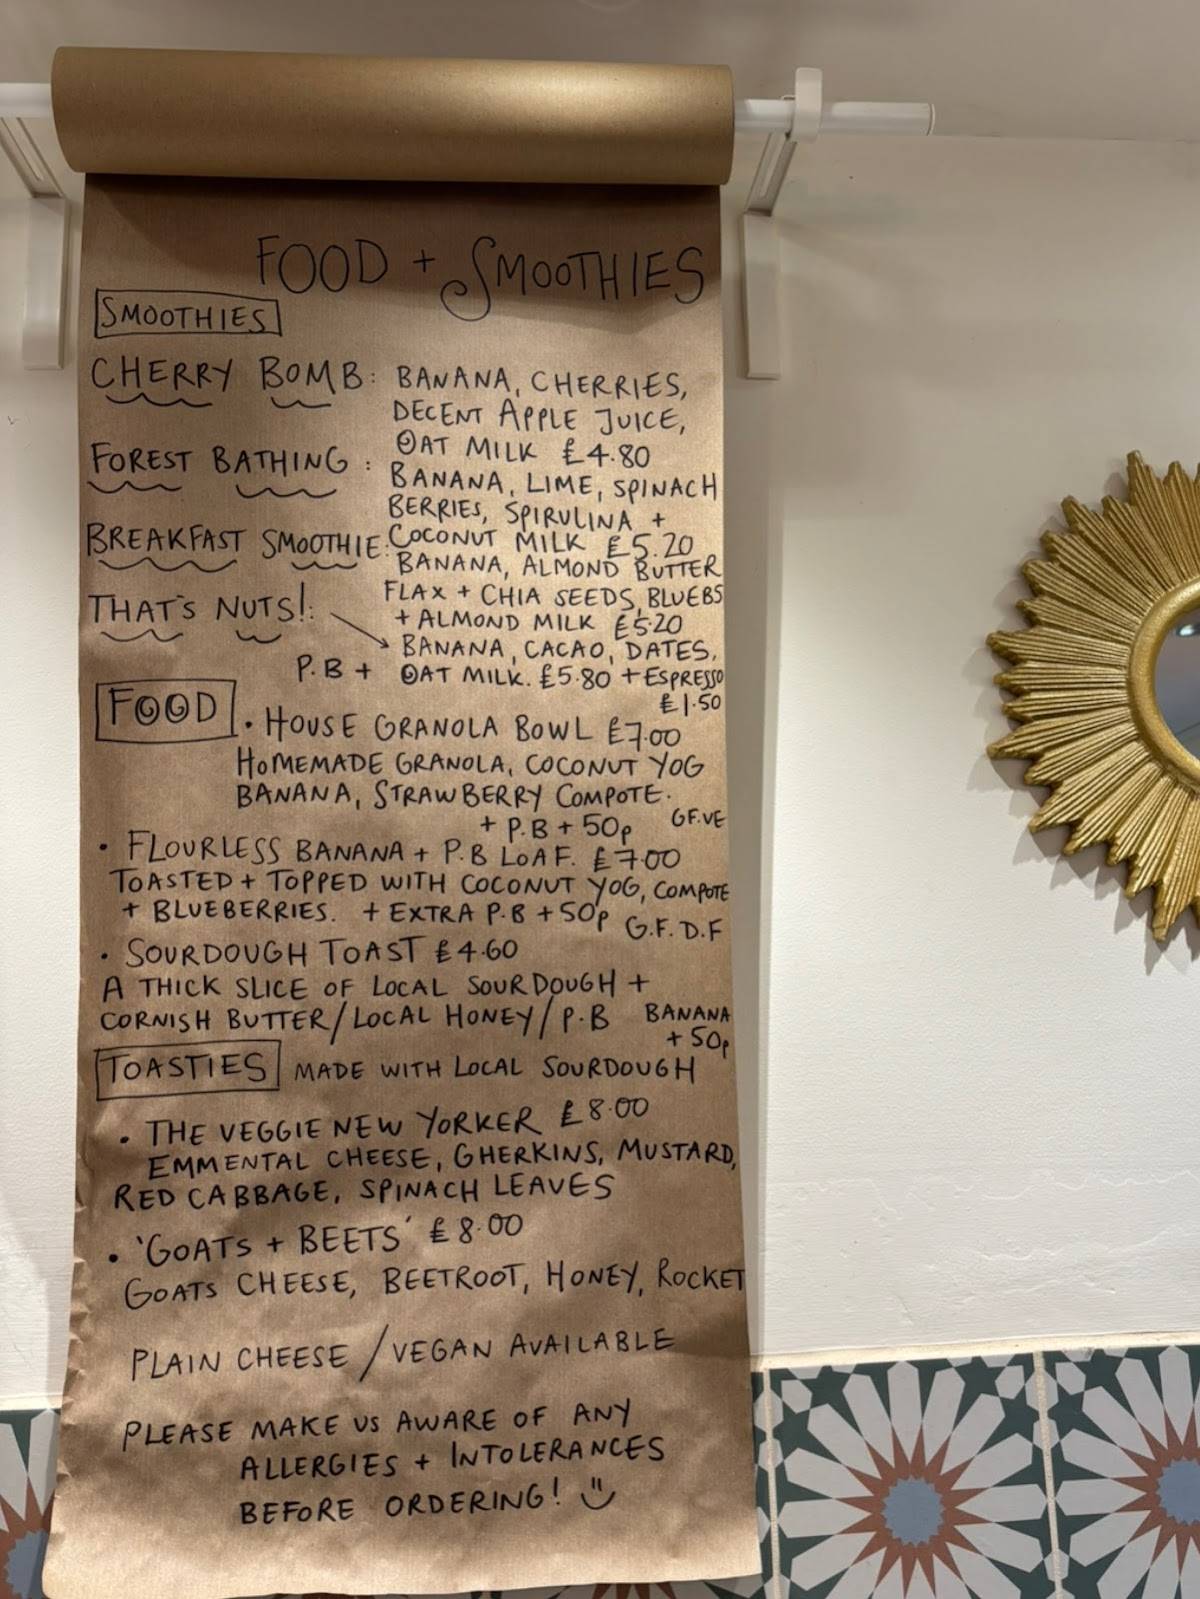 FOOD + SMOOTHIES
SMOOTHIES
CHERRY BOMB: BANANA, CHERRIES,
DECENT APPLE JUICE,
OAT MILK £4.80
FOREST BATHING :
BANANA, LIME, SPINACH
BERRIES, SPIRULINA +
COCONUT MILK £5.20
BREAKFAST SMOOTHIE:
BANANA, ALMOND BUTTER
FLAX + CHIA SEEDS, BLUEBS
+ ALMOND MILK £5.20
THAT'S NUTS!:
BANANA, CACAO, DATES,
P.B + OAT MILK. £5.80 + ESPRESSO
£1.50
FOOD
• HOUSE GRANOLA BOWL £7.00
HOMEMADE GRANOLA, COCONUT YOG
BANANA, STRAWBERRY COMPOTE.
+ P.B + 50p GF.VE
• FLOURLESS BANANA + P.B LOAF. £7.00
TOASTED + TOPPED WITH COCONUT YOG, COMPOTE
+ BLUEBERRIES. + EXTRA P.B + 50p G.F. D.F
• SOURDOUGH TOAST £4.60
A THICK SLICE OF LOCAL SOURDOUGH +
CORNISH BUTTER/LOCAL HONEY/P.B BANANA
+ 50p
TOASTIES MADE WITH LOCAL SOURDOUGH
• THE VEGGIE NEW YORKER £8.00
EMMENTAL CHEESE, GHERKINS, MUSTARD,
RED CABBAGE, SPINACH LEAVES
• 'GOATS + BEETS' £8.00
GOATS CHEESE, BEETROOT, HONEY, ROCKET
PLAIN CHEESE / VEGAN AVAILABLE
PLEASE MAKE US AWARE OF ANY
ALLERGIES + INTOLERANCES
BEFORE ORDERING!